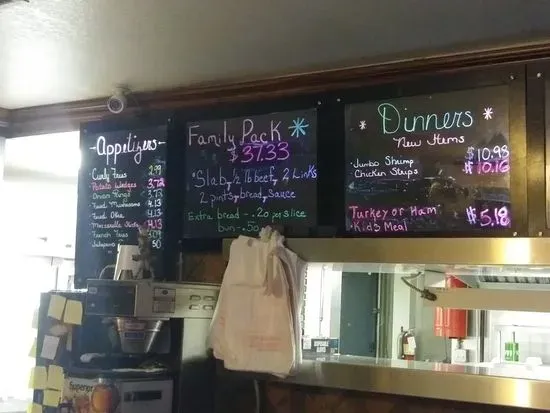 Appetizers
Curly Fries 2.99
Potato Wedges 3.73
Onion Rings 3.73
Fried Mushrooms 4.13
Fried Okra 4.13
Mozzarella Sticks 4.13
French Fries
Jalapeno 50
Family Pack
$37.33
Slab, ½ lb beef, 2 Links
2 pints, bread, Sauce
Extra bread - .20 per slice
bun - .50
Dinners
New Items
Jumbo Shrimp $10.98
Chicken Strips $10.16
Turkey or Ham $5.18
Kid's Meal